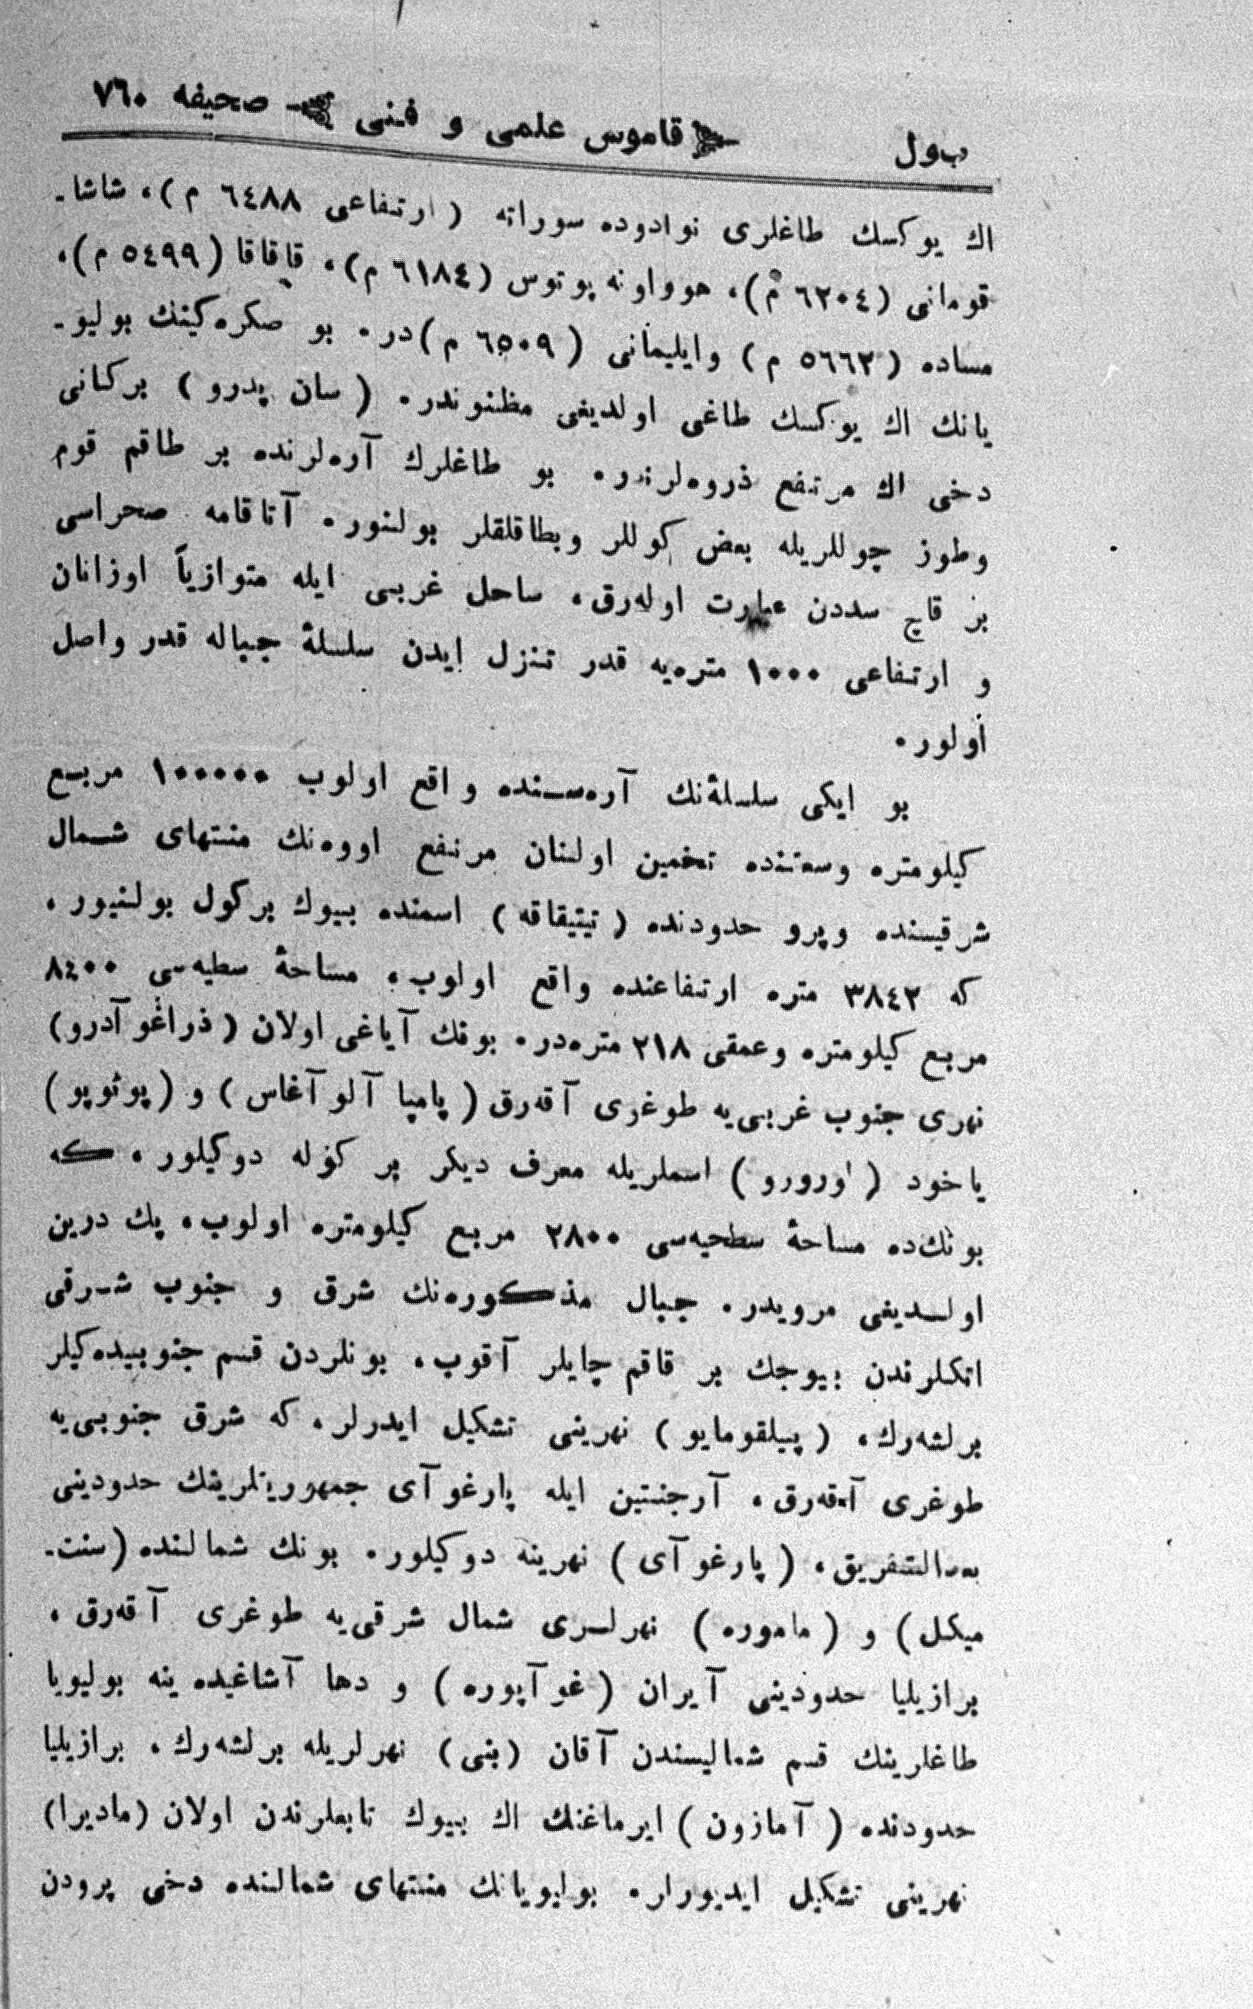 بول
قاموس علمی و فنی
صحیفه ٧٦٠
اك یوكسك طاغلری نوادوده سوراته (ارتفاعی ٦٤٨٨ م)، شاشا-
قومانی (٦٢٠٤ م)، هوواونه پوتوس (٦١٨٤ م)، قاقاقا (٥٤٩٩ م)،
مساده (٥٦٦٢ م) وایلیمانی (٦٥٠٩ م)در. بو صكره‌كینك بولیو-
یانك اك یوكسك طاغی اولدیغی مظنوندر. (سان پدرو) بركانی
دخی اك مرتفع ذروه‌لرندر. بو طاغلرك آره‌لرنده بر طاقم قوم
وطوز چوللریله بعض كوللر وبطاقلقلر بولنور. آتاقامه صحراسی
بر قاچ سددن عبارت اوله‌رق، ساحل غربی ایله متوازیاً اوزانان
و ارتفاعی ١٠٠٠ متره‌یه قدر تنزل ایدن سلسلهٔ جباله قدر واصل
اولور.
بو ایكی سلسلهٔنك آره‌سنده واقع اولوب ١٠٠٠٠٠ مربع
كیلومتره وسعتنده تخمین اولنان مرتفع اووه‌نك منتهای شمال
شرقیسنده وپرو حدودنده (تیتیقاقه) اسمنده بیوك بركول بولنیور،
كه ٣٨٤٢ متره ارتفاعنده واقع اولوب، مساحهٔ سطیه‌سی ٨٤٠٠
مربع كیلومتره وعمقی ٢١٨ متره‌در. بونك آیاغی اولان (ذراغوآدرو)
نهری جنوب غربی‌یه طوغری آقه‌رق (پامپا آلوآغاس) و (پوئوپو)
یاخود (اورورو) اسملریله معرف دیكر بر كوله دوكیلور، كه
بونك‌ده مساحهٔ سطحیه‌سی ٢٨٠٠ مربع كیلومتره اولوب، پك درین
اولدیغی مرویدر. جبال مذكوره‌نك شرق و جنوب شرقی
اتكلرندن بیوجك بر قاقم چایلر آقوب، بونلردن قسم جنوبیده‌كیلر
برلشه‌رك، (پیلقومایو) نهرینی تشكیل ایدرلر، كه شرق جنوبی‌یه
طوغری آقه‌رق، آرجنتین ایله پارغوآی جمهوریتلرینك حدودینی
بعدالتفریق، (پارغوآی) نهرینه دوكیلور. بونك شمالنده (سنت-
میكل) و (ماموره) نهرلری شمال شرقی‌یه طوغری آقه‌رق،
برازیلیا حدودینی آیران (غوآپوره) و دها آشاغیده ینه بولیویا
طاغلرینك قسم شمالیسندن آقان (بنی) نهرلریله برلشه‌رك، برازیلیا
حدودنده (آمازون) ایرماغنك اك بیوك تابعلرندن اولان (مادیرا)
نهرینی تشكیل ایدیورلر. بولیویانك منتهای شمالنده دخی پرودن